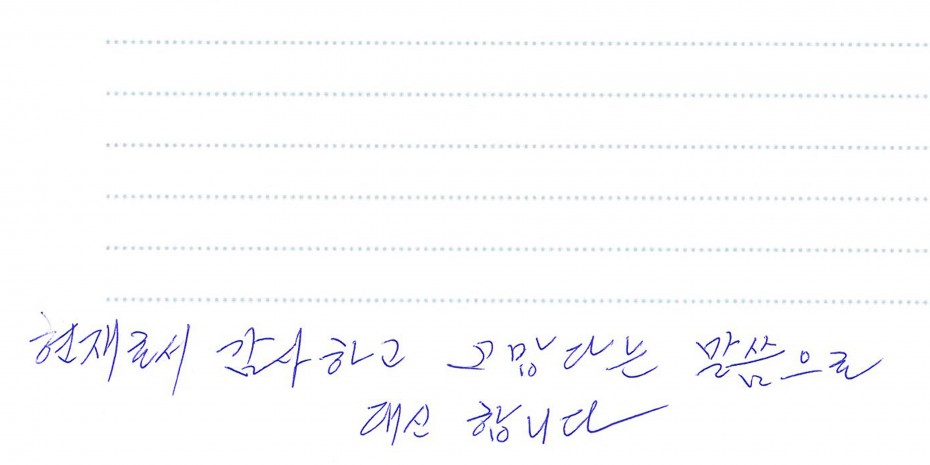 현재로서 감사하고 고맙다는 말씀으로
대신 합니다